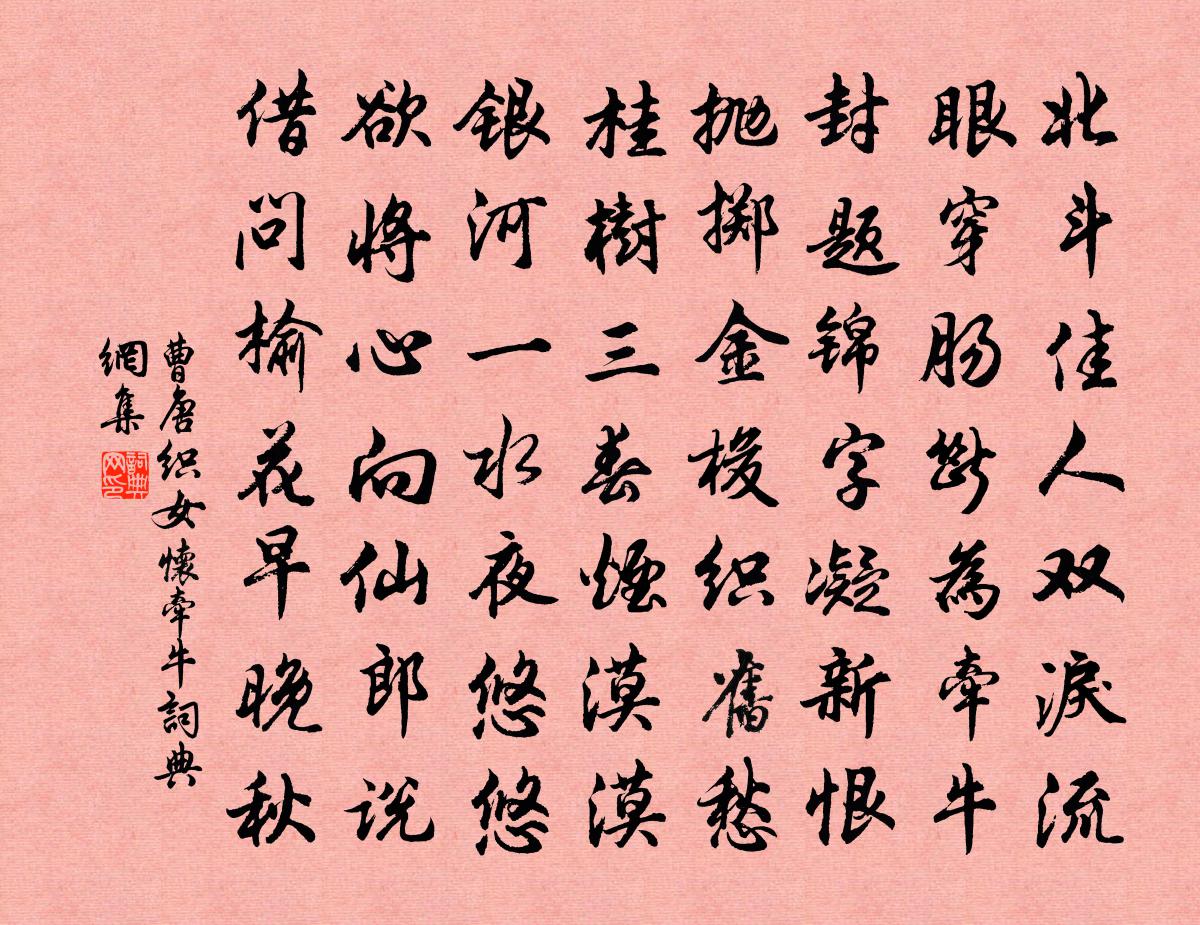 北斗佳人双淚流
眼穿肠断為牽牛
封题锦字凝新恨
抛掷金梭织舊愁
桂樹三春煙漠漠
银河一水夜悠悠
欲將心向仙郎说
借问榆花早晚秋
曹唐织女懷牽牛詞典
網集
詞典网印